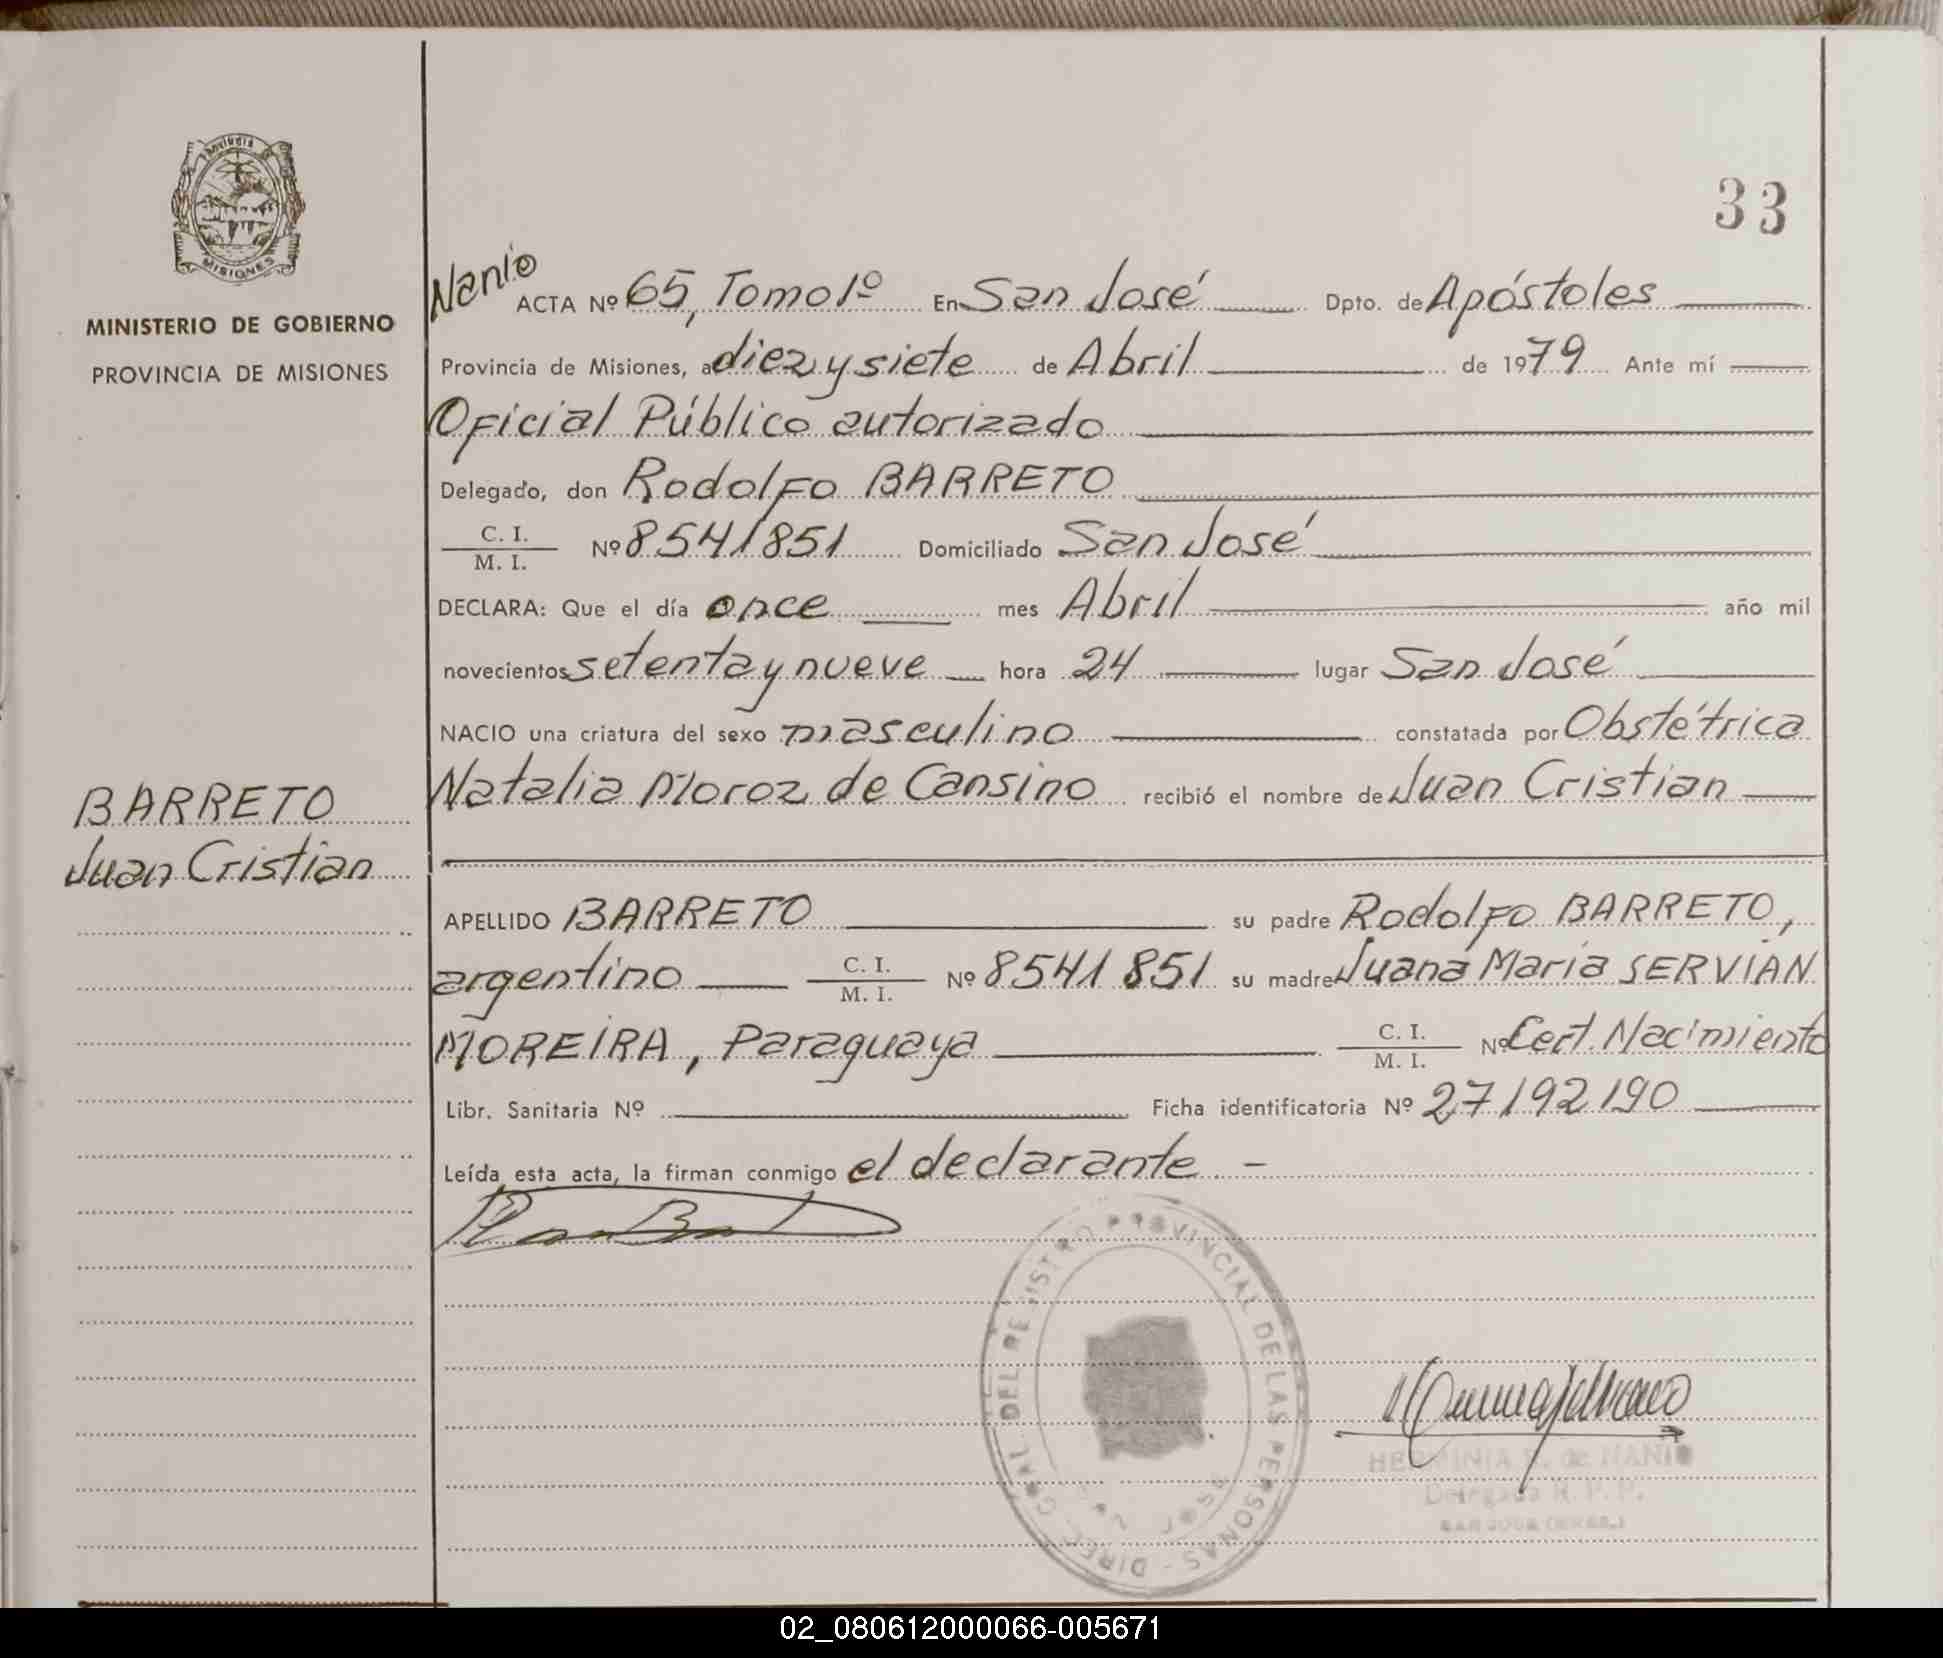 33
MINISTERIO DE GOBIERNO
PROVINCIA DE MISIONES
MISIONES
BARRETO
Juan Cristian
Nanio
ACTA Nº 65, Tomo 1º En San José Dpto. de Apóstoles
Provincia de Misiones, a diez y siete de Abril de 1979 Ante mí
Oficial Público autorizado
Delegado, don Rodolfo BARRETO
C. I. / M. I. Nº 8541851 Domiciliado San José
DECLARA: Que el día once mes Abril año mil
novecientos setenta y nueve hora 24 lugar San José
NACIO una criatura del sexo masculino constatada por Obstétrica
Natalia Moroz de Cansino recibió el nombre de Juan Cristian
APELLIDO BARRETO su padre Rodolfo BARRETO,
argentino C. I. / M. I. Nº 8541851 su madre Juana María SERVIAN
MOREIRA, Paraguaya C. I. / M. I. Nº Cert. Nacimiento
Libr. Sanitaria Nº Ficha identificatoria Nº 27192190
Leída esta acta, la firman conmigo el declarante. -
DIREC. GRAL DEL REGISTRO PROVINCIAL DE LAS PERSONAS -
SAN JOSE
HERMINIA R. de NANIO
Delegada R. P. P.
02_080612000066-005671